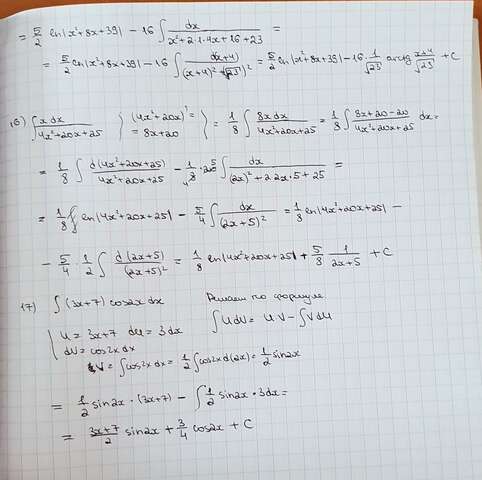 = 5/2 ln|x²+8x+39| − 16 ∫ dx/(x²+2·1·4x+16+23) =
= 5/2 ln|x²+8x+39| − 16 ∫ d(x+4)/((x+4)²+(√23)²) = 5/2 ln|x²+8x+39| − 16 · 1/√23 arctg (x+4)/√23 + C
16) ∫ x dx/(4x²+20x+25) } (4x²+20x)' = = 8x+20 } = 1/8 ∫ 8x dx/(4x²+20x+25) = 1/8 ∫ (8x+20−20)/(4x²+20x+25) dx =
= 1/8 ∫ d(4x²+20x+25)/(4x²+20x+25) − 1/8 · 20 ∫ dx/((2x)²+2·2x·5+25) =
= 1/8 ln|4x²+20x+25| − 5/4 ∫ dx/(2x+5)² = 1/8 ln|4x²+20x+25| −
− 5/4 · 1/2 ∫ d(2x+5)/(2x+5)² = 1/8 ln|4x²+20x+25| + 5/8 1/(2x+5) + C
17) ∫ (3x+7) cos2x dx Решаем по формуле
u = 3x+7 du = 3dx ∫ u dv = u v − ∫ v du
dv = cos2x dx
v = ∫ cos2x dx = 1/2 ∫ cos2x d(2x) = 1/2 sin2x
= 1/2 sin2x · (3x+7) − ∫ 1/2 sin2x · 3dx =
= (3x+7)/2 sin2x + 3/4 cos2x + C